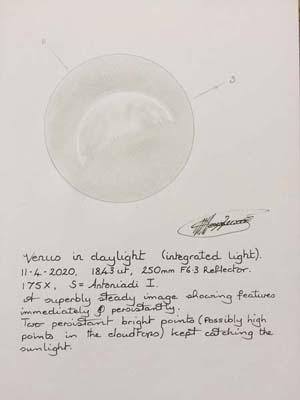 S
Venus in daylight (integrated light).
11-4-2020, 1843 ut, 250mm F6.3 Reflector.
175X, S = Antoniadi I.
A superbly steady image showing features
immediately & persistantly.
Two persistant bright points (Possibly high
points in the cloudtops) kept catching the
sunlight.